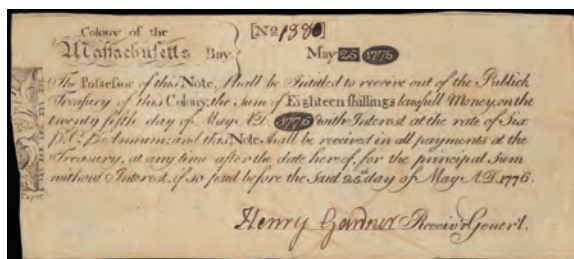 Colony of the
Massachusetts Bay. } [No 1880]
May 25 1775
The Possessor of this Note, shall be Intitled to receive out of the Publick
Treasury of this Colony, the Sum of Eighteen shillings lawfull Money, on the
twenty fifth day of May A.D. 1776 with Interest at the rate of Six
P. Ct. P. Annum; and this Note shall be received in all payments at the
Treasury, at any time after the date hereof, for the principal Sum
without Interest, if so paid before the Said 25th day of May A.D. 1776.
Henry Gardner Receiv'r Gener'l.